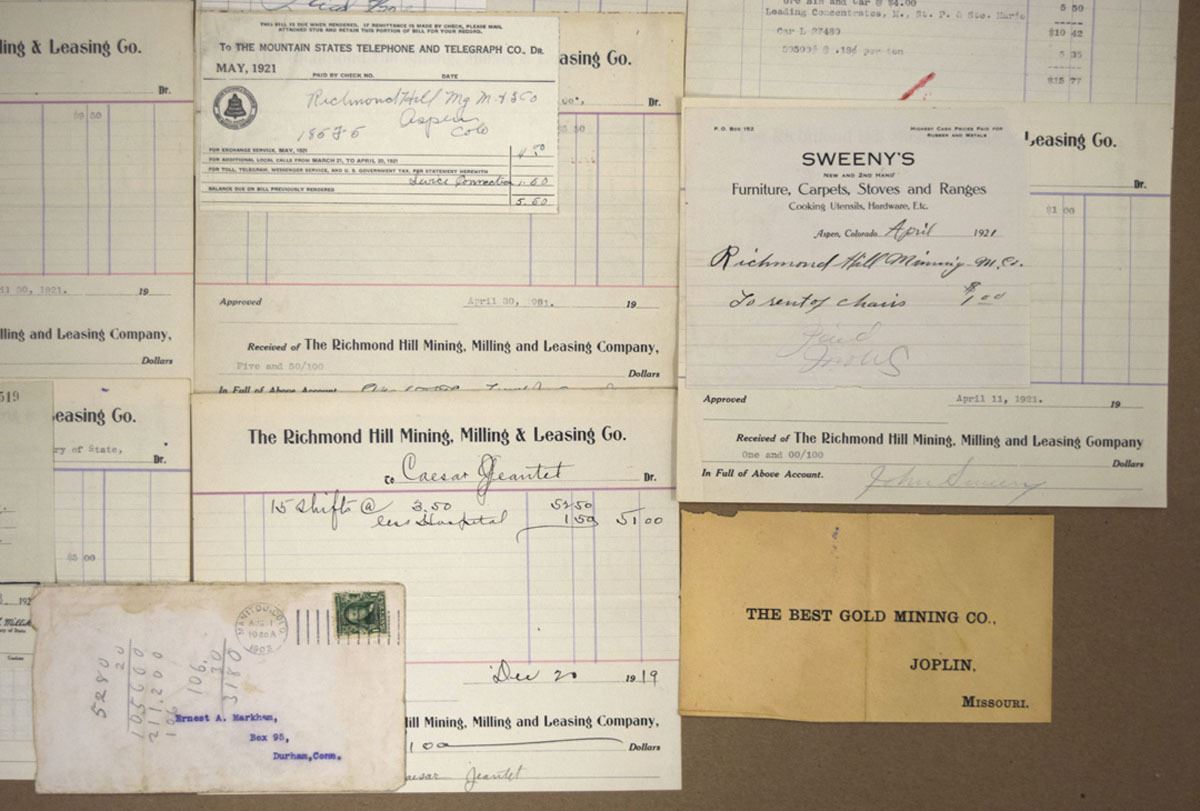 ling & Leasing Co.
Dr.
il 30, 1921.
19
lling and Leasing Company,
Dollars
THIS BILL IS DUE WHEN RENDERED. IF REMITTANCE IS MADE BY CHECK, PLEASE MAIL
ATTACHED STUB AND RETAIN THIS PORTION OF BILL FOR YOUR RECORD.
To THE MOUNTAIN STATES TELEPHONE AND TELEGRAPH CO., DR.
MAY, 1921
PAID BY CHECK NO. DATE
Richmond Hill Mg M & L Co
Aspen
Colo
185 F 5
FOR EXCHANGE SERVICE, MAY, 1921 4.00
FOR ADDITIONAL LOCAL CALLS FROM MARCH 21, TO APRIL 20, 1921
FOR TOLL, TELEGRAM, MESSENGER SERVICE, AND U. S. GOVERNMENT TAX, PER STATEMENT HEREWITH
Connection 1.50
BALANCE DUE ON BILL PREVIOUSLY RENDERED
5.50
asing Co.
Dr.
Approved April 30, 1981. 19
Received of The Richmond Hill Mining, Milling and Leasing Company,
Five and 50/100
Dollars
In Full of Above Account.
Ore Bin and Car @ $4.00
Loading Concentrates, M., St. P. & Ste. Marie 5 50
$10 42
Car L 27480
per ton 5 35
$15 77
P.O. Box 152
Highest Cash Prices Paid for
Rubber and Metals
SWEENY'S
New and 2nd Hand
Furniture, Carpets, Stoves and Ranges
Cooking Utensils, Hardware, Etc.
Aspen, Colorado April 1921
Richmond Hill Mining M. Co.
To rent of chairs $1.00
Paid
Leasing Co.
Dr.
$1 00
Approved April 11, 1921. 19
Received of The Richmond Hill Mining, Milling and Leasing Company
One and 00/100
Dollars
In Full of Above Account.
John Sweeny
519
easing Co.
ry of State,
Dr.
$5 00
The Richmond Hill Mining, Milling & Leasing Co.
To Caesar Jeantet Dr.
15 shifts @ 3.50 52 50
less Hospital 1 50 51 00
Dec 20 1919
ill Mining, Milling and Leasing Company,
100
Dollars
aesar Jeantet
MANITOU, COLO.
AUG 1
1902
5280
20
105600
21,200
106
106.
30
3180
Ernest A. Markham,
Box 95,
Durham, Conn.
THE BEST GOLD MINING CO.,
JOPLIN,
MISSOURI.